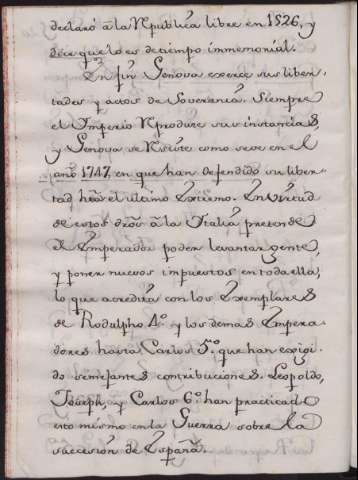 declaró à la Republica libre en 1526, y
dice que lo es de tiempo immemorial.
En fin Genova exerce sus liber-
tades y actos de Soverania. Siempre
el Imperio Reproduce sus instancias,
y Genova se Resiste como se ve en el
año 1747, en que han defendido su liber-
tad hta el ultimo Extremo. En virtud
de estos dros à la Italia pretende
el Emperador poder levantar gente,
y poner nuevos impuestos en toda ella,
lo que acredita con los Exemplares
de Rodulpho 4º y los demas Empera-
dores hasta Carlos 5º que han exigi-
do semejantes contribuciones. Leopoldo,
Joseph, y Carlos 6º han practicado
esto mismo en la Guerra sobre la
succesión de España.